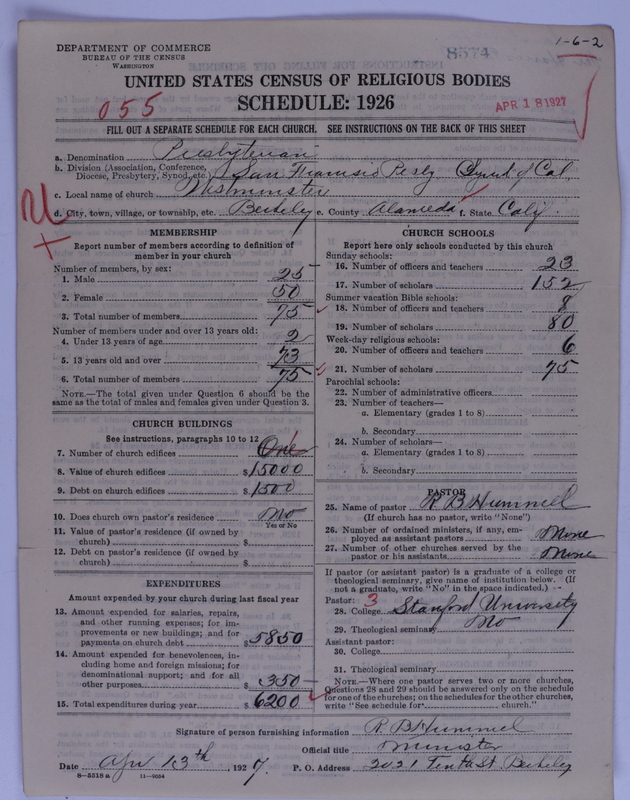 1-6-2
8574
DEPARTMENT OF COMMERCE
BUREAU OF THE CENSUS
WASHINGTON
UNITED STATES CENSUS OF RELIGIOUS BODIES
SCHEDULE: 1926
055
APR 18 1927
FILL OUT A SEPARATE SCHEDULE FOR EACH CHURCH. SEE INSTRUCTIONS ON THE BACK OF THIS SHEET
a. Denomination Presbyterian
b. Division (Association, Conference, Diocese, Presbytery, Synod, etc.) San Francisco Presby Synod of Cal.
c. Local name of church Westminster
d. City, town, village, or township, etc. Berkeley e. County Alameda f. State Calif.
MEMBERSHIP
Report number of members according to definition of
member in your church
Number of members, by sex:
1. Male 25
2. Female 50
3. Total number of members 75
Number of members under and over 13 years old:
4. Under 13 years of age 2
5. 13 years old and over 73
6. Total number of members 75
NOTE.—The total given under Question 6 should be the
same as the total of males and females given under Question 3.
CHURCH BUILDINGS
See instructions, paragraphs 10 to 12
7. Number of church edifices One 1
8. Value of church edifices $15000
9. Debt on church edifices $1500
10. Does church own pastor's residence No
Yes or No
11. Value of pastor's residence (if owned by
church) $
12. Debt on pastor's residence (if owned by
church) $
EXPENDITURES
Amount expended by your church during last fiscal year
13. Amount expended for salaries, repairs,
and other running expenses; for im-
provements or new buildings; and for
payments on church debt $5850
14. Amount expended for benevolences, in-
cluding home and foreign missions; for
denominational support; and for all
other purposes $350
15. Total expenditures during year $6200
CHURCH SCHOOLS
Report here only schools conducted by this church
Sunday schools:
16. Number of officers and teachers 23
17. Number of scholars 152
Summer vacation Bible schools:
18. Number of officers and teachers 8
19. Number of scholars 80
Week-day religious schools:
20. Number of officers and teachers 6
21. Number of scholars 75
Parochial schools:
22. Number of administrative officers
23. Number of teachers—
a. Elementary (grades 1 to 8)
b. Secondary
24. Number of scholars—
a. Elementary (grades 1 to 8)
b. Secondary
PASTOR
25. Name of pastor R B Hummel
(If church has no pastor, write "None")
26. Number of ordained ministers, if any, em-
ployed as assistant pastors None
27. Number of other churches served by the
pastor or his assistants None
If pastor (or assistant pastor) is a graduate of a college or
theological seminary, give name of institution below. (If
not a graduate, write "No" in the space indicated.)
Pastor: 3
28. College Stanford University
29. Theological seminary No
Assistant pastor:
30. College
31. Theological seminary
NOTE.—Where one pastor serves two or more churches,
Questions 28 and 29 should be answered only on the schedule
for one of the churches; on the schedules for the other churches,
write "See schedule for church."
Signature of person furnishing information R. B Hummel
Official title Minister
Date Apr 13th, 1927. P. O. Address 2021 Tenth St. Berkeley
8—5518 a 11—9054